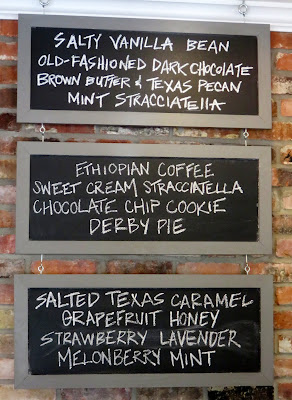 SALTY VANILLA BEAN
OLD-FASHIONED DARK CHOCOLATE
BROWN BUTTER & TEXAS PECAN
MINT STRACCIATELLA
ETHIOPIAN COFFEE
SWEET CREAM STRACCIATELLA
CHOCOLATE CHIP COOKIE
DERBY PIE
SALTED TEXAS CARAMEL
GRAPEFRUIT HONEY
STRAWBERRY LAVENDER
MELONBERRY MINT